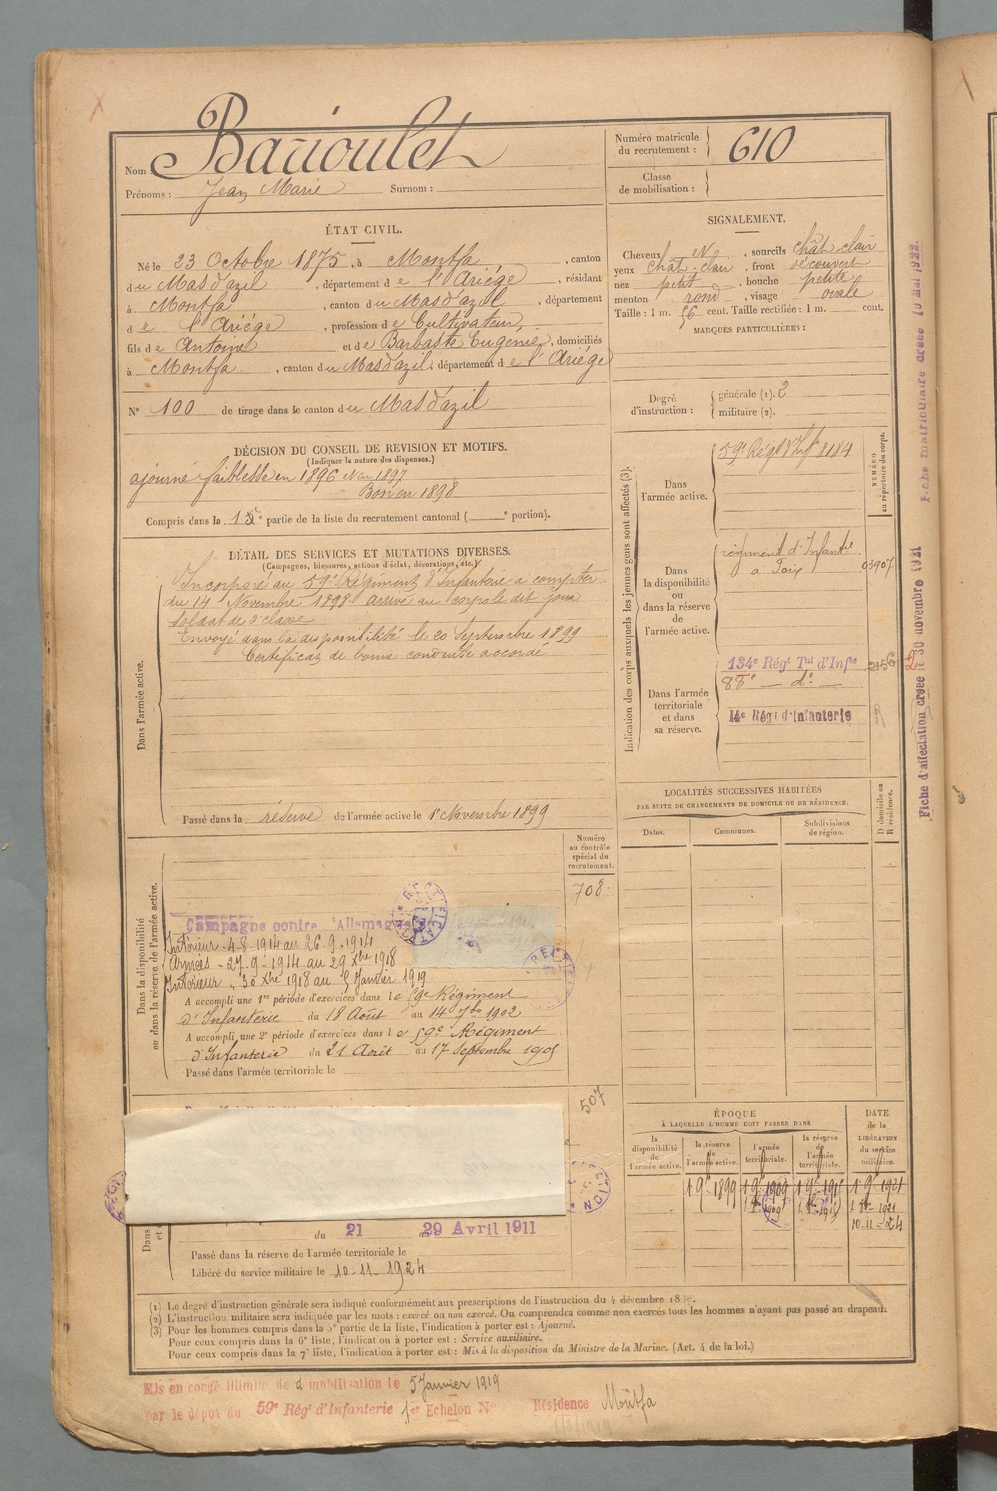 Nom : Barioulet
Prénoms : Jean Marie Surnom :
Numéro matricule du recrutement : 610
Classe de mobilisation :
ÉTAT CIVIL.
Né le 23 Octobre 1875, à Montfa, canton
du Mas d'azil, département de l'Ariége, résidant
à Montfa, canton du Mas d'azil, département
de l'Ariége, profession de Cultivateur,
fils de Antoine et de Barbaste Eugénie, domiciliés
à Montfa, canton du Mas d'azil, département de l'Ariége
N° 100 de tirage dans le canton du Mas d'azil
SIGNALEMENT.
Cheveux , sourcils chât clair
yeux chât. clair, front découvert
nez petit, bouche petite
menton rond, visage ovale
Taille : 1 m. 56 cent. Taille rectifiée : 1 m. cent.
MARQUES PARTICULIÈRES :
Degré d'instruction : générale (1). 2
militaire (2).
DÉCISION DU CONSEIL DE REVISION ET MOTIFS.
(Indiquer la nature des dispenses.)
ajourné faiblesse en 1896 1897
Bon en 1898
Compris dans la 1e partie de la liste du recrutement cantonal ( e portion).
DÉTAIL DES SERVICES ET MUTATIONS DIVERSES.
(Campagnes, blessures, actions d'éclat, décorations, etc.)
Dans l'armée active.
Incorporé au 59e Régiment d'Infanterie à compter
du 14 Novembre 1898 arrivé au corps le dit jour
soldat de 2e classe
Envoyé dans la disponibilité le 20 Septembre 1899
Certificat de bonne conduite accordé
Passé dans la réserve de l'armée active le 1er Novembre 1899
Indication des corps auxquels les jeunes gens sont affectés (3).
NUMÉRO au répertoire du corps.
Dans l'armée active.
59e Régt d'Inf
Dans la disponibilité ou dans la réserve de l'armée active.
régiment d'Infantie
a Foix
03907
Dans l'armée territoriale et dans sa réserve.
134e Régt Tal d'Infie
88e — do —
14e Régt d'Infanterie
LOCALITÉS SUCCESSIVES HABITÉES
PAR SUITE DE CHANGEMENTS DE DOMICILE OU DE RÉSIDENCE.
Dates. Communes. Subdivisions de région. D domicile ou R résidence.
Fiche d'affectation créée le 30 novembre 1921
Fiche matriculaire créée 10 Mai 1922.
Numéro au contrôle spécial du recrutement.
708
Dans la disponibilité ou dans la réserve de l'armée active.
Campagne contre l'Allemagne
Intérieur - 4-8-1914 au 26-9-1914
Armées - 27-9-1914 au 29 Xbre 1918
Intérieur - 30 Xbre 1918 au 5 Janvier 1919
RECTIFICAT
RECTIFI
A accompli une 1re période d'exercices dans le 59e Régiment
d'Infanterie du 18 Août au 14 7bre 1902
A accompli une 2e période d'exercices dans le 59e Régiment
d'Infanterie du 21 Août au 17 Septembre 1905
Passé dans l'armée territoriale le
507
du 21 au 29 Avril 1911
Passé dans la réserve de l'armée territoriale le
Libéré du service militaire le 10-11-1924
ÉPOQUE
À LAQUELLE L'HOMME DOIT PASSER DANS
la disponibilité de l'armée active. la réserve de l'armée active. l'armée territoriale. la réserve de l'armée territoriale.
DATE de la LIBÉRATION du service militaire.
1 9bre 1899 1 9bre 1909 1 9bre 1915 1 9bre 1921
10-11-24
(1) Le degré d'instruction générale sera indiqué conformément aux prescriptions de l'instruction du 4 décembre
(2) L'instruction militaire sera indiquée par les mots : exercé ou non exercé. On comprendra comme non exercés tous les hommes n'ayant pas passé au drapeau.
(3) Pour les hommes compris dans la 5e partie de la liste, l'indication à porter est : Ajourné.
Pour ceux compris dans la 6e liste, l'indication à porter est : Service auxiliaire.
Pour ceux compris dans la 7e liste, l'indication à porter est : Mis à la disposition du Ministre de la Marine. (Art. 4 de la loi.)
Mis en congé illimité de démobilisation le 5 Janvier 1919
par le dépôt du 59e Régt d'Infanterie 1er Echelon N° Résidence Montfa